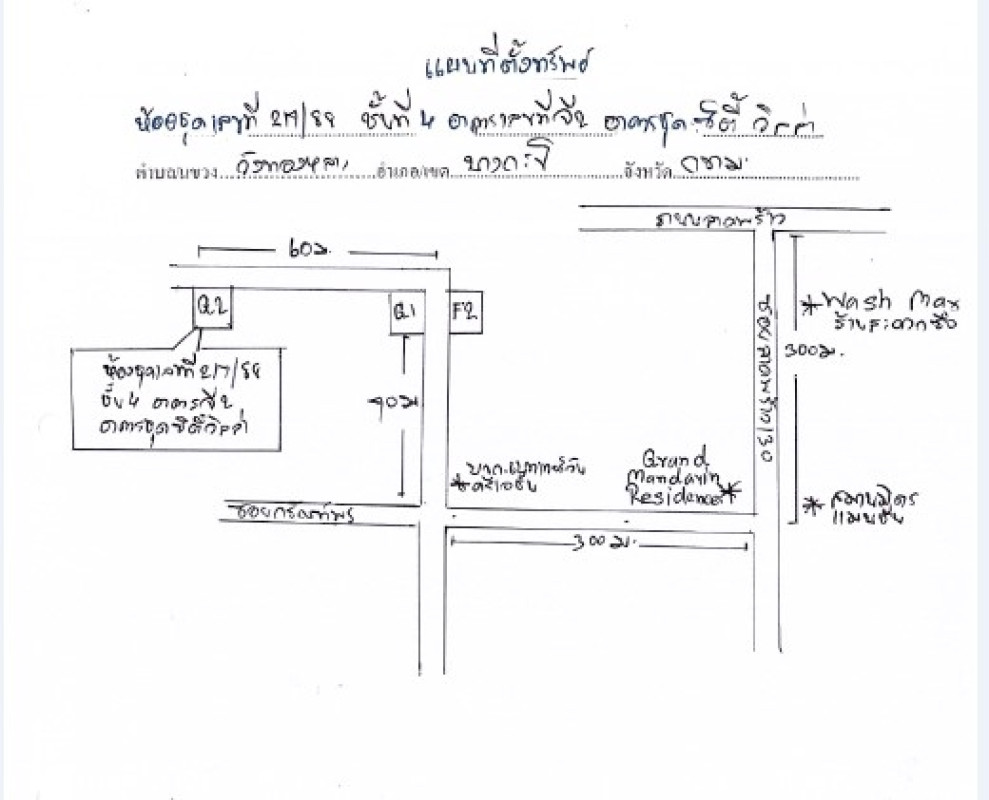 แผนที่ตั้งทรัพย์
ห้องชุดเลขที่ 217/88 ชั้นที่ 4 อาคารเลขที่จี2 อาคารชุด ซิตี้ วิลล่า
ตำบล/แขวง วังทองหลาง อำเภอ/เขต บางกะปิ จังหวัด กทม.
ถนนลาดพร้าว
60ม.
G2
G1
F2
ซอยลาดพร้าว130
* Wash Max
ร้านสะดวกซัก
300ม.
ห้องชุดเลขที่ 217/88
ชั้น 4 อาคารจี2
อาคารชุดซิตี้วิลล่า
90ม
* 
Grand
Mandarin
Residence *
* สมานมิตร
แมนชั่น
ซอยกรัณฑ์พร
300 ม.